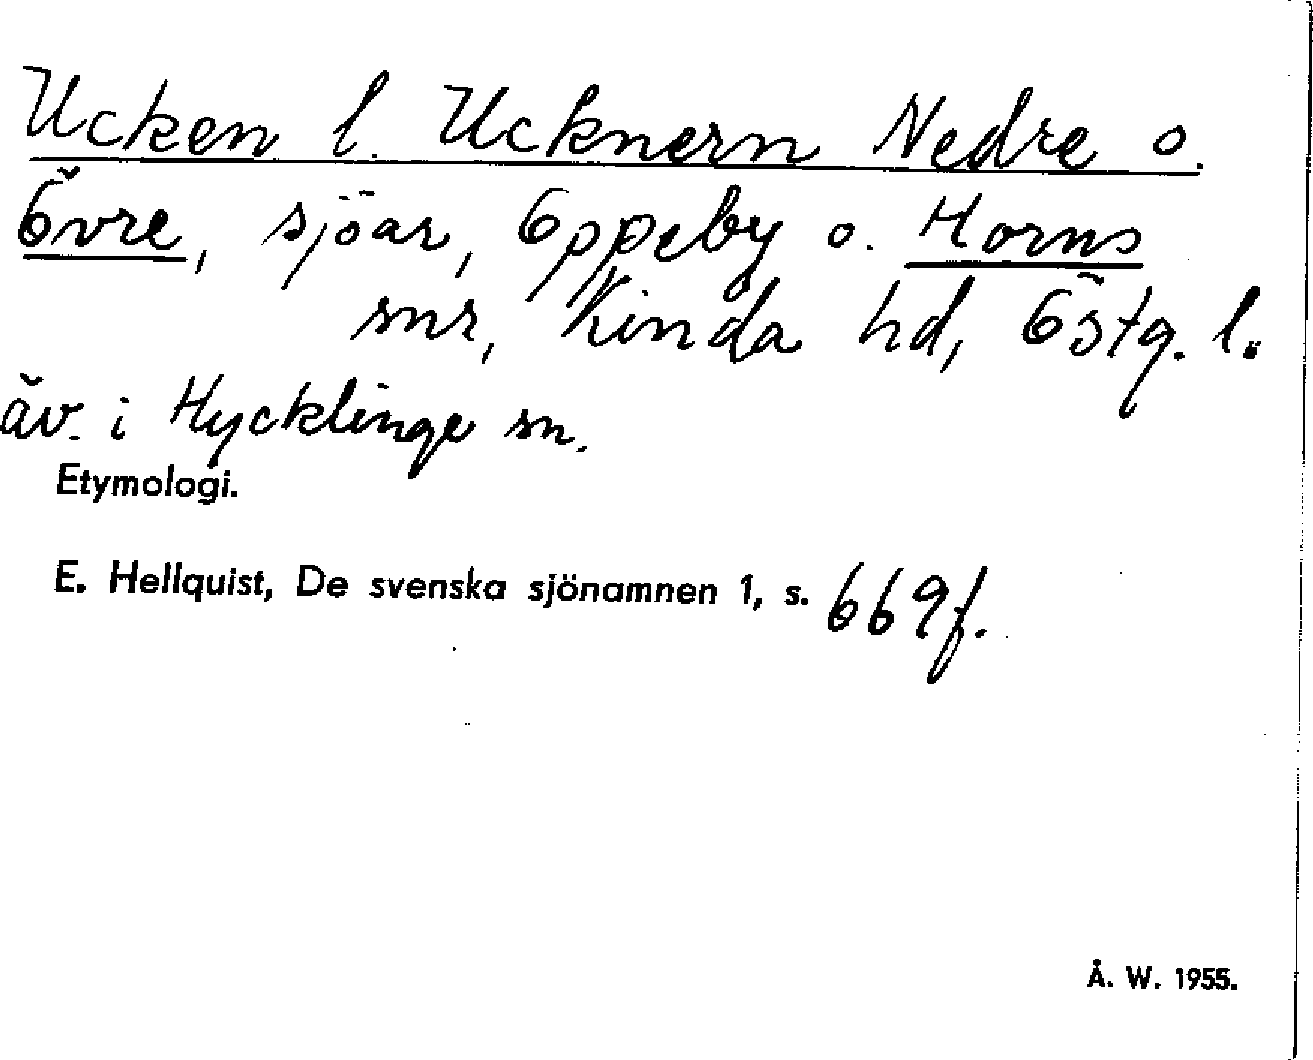 Ucken l. Ucknern Nedre o.
Övre, sjöar, Oppeby o. Horns
snr, Kinda hd, Östg. l.
äv. i Hycklinge sn.
Etymologi.
E. Hellquist, De svenska sjönamnen 1, s. 669f.
Å. W. 1955.